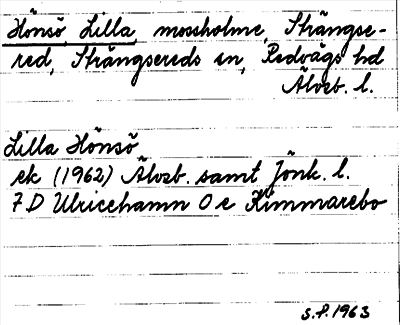 Hönsö, Lilla, mossholme, Strängse-
red, Strängsereds sn, Redvägs hd
Älvsb. l.
Lilla Hönsö
ek (1962) Älvsb. samt Jönk. l.
7 D Ulricehamn O e Kimmarebo
S.P. 1963